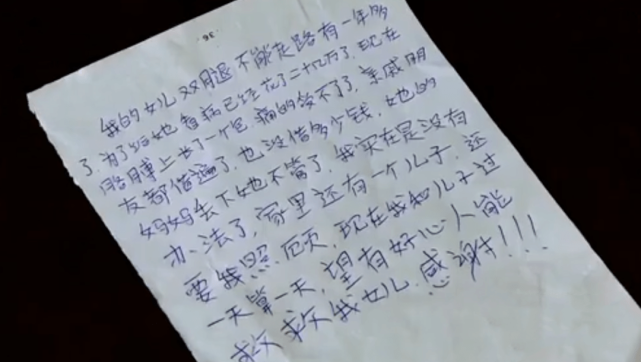 36
我的女儿双腿不能走路有一年多
了.为了给她看病已经花了二十几万了.现在
胳膊上长了一个包.痛的受不了了.亲戚朋
友都借遍了.也没借多少钱.她的
妈妈丢下她不管了.我实在是没有
办法了.家里还有一个儿子.还
要我照顾.现在我和儿子过
一天算一天.望有好心人能
救救我女儿.感谢!!!